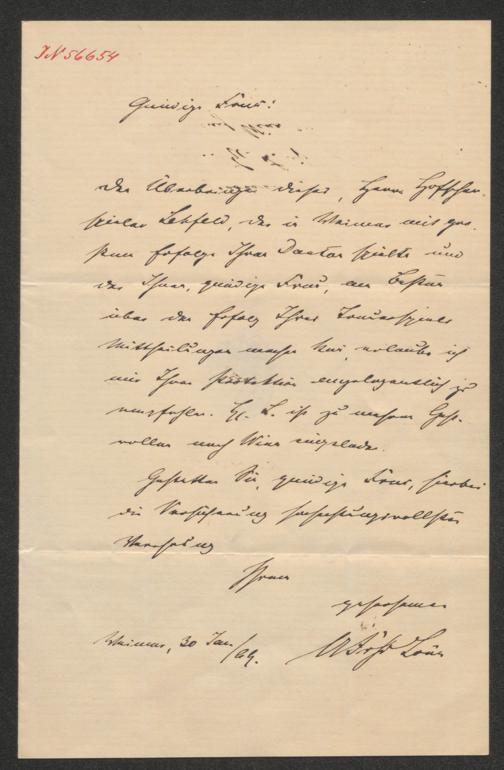 JN 56654
Gnädige Frau!
Der Überbringer dieses, Herr Hofschau-
spieler Lehfeld, der in Weimar mit gros-
sem Erfolge Ihren spielte und
der Ihnen, gnädige Frau, am Besten
über den Erfolg Ihres Trauerspiels
Mittheilungen machen kann, erlaube ich
mir Ihrer Protektion angelegentlich zu
empfehlen. H. L. ist zu mehren Gast-
rollen nach Wien eingeladen.
Gestatten Sie, gnädige Frau, hierbei
die Versicherung hochachtungsvollster
Verehrung
Ihres
gehorsamen
Weimar, 30 Jan/69.